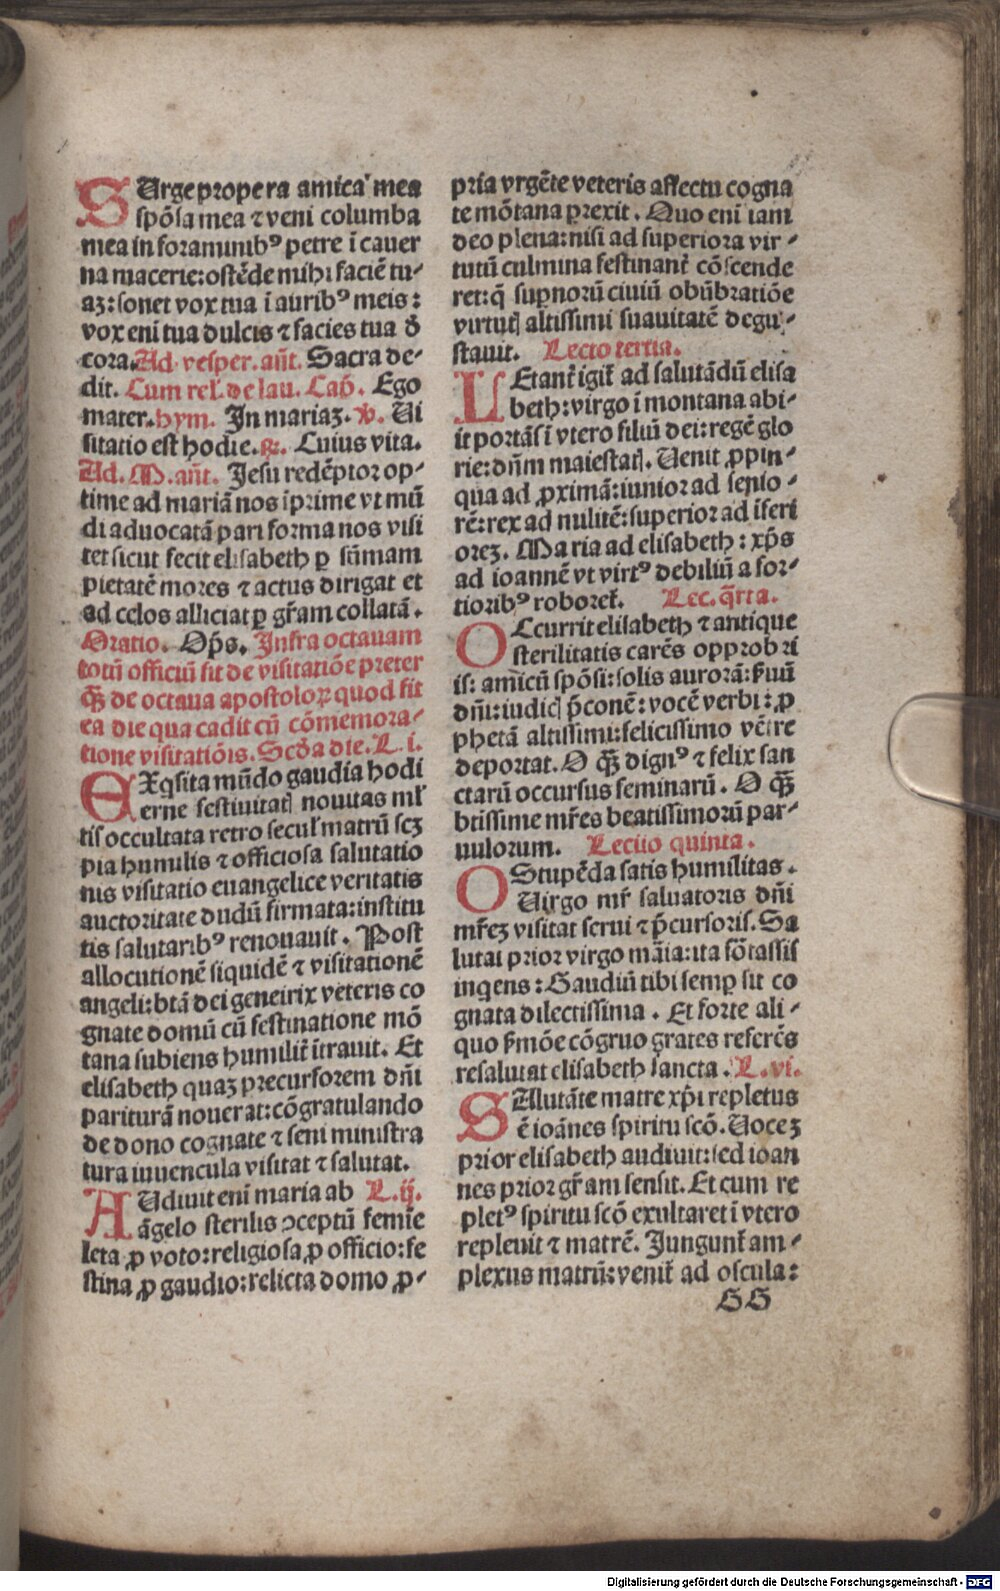 SUrge propera amica mea
spõsa mea ⁊ veni columba
mea in foraminibꝰ petre ĩ cauer
na macerie: ostẽde mihi faciẽ tu⸗
aꝫ: sonet vox tua ĩ auribꝰ meis:
vox eni tua dulcis ⁊ facies tua d̾
cora. Ad vesper. añt. Sacra de⸗
dit. Cum rel̾. de lau. Cap̃. Ego
mater. hym. In mariaꝫ. v̾. Ui
sitatio est hodie. ꝶ. Cuius vita.
Ad. M. añt. Jesu redẽptor op⸗
time ad mariã nos ĩprime vt mũ
di aduocatã pari forma nos visi
tet sicut fecit elisabeth ꝑ sũmam
pietatẽ mores ⁊ actus dirigat et
ad celos alliciat ꝑ gr̃am collatã.
Oratio. Op̃s. Infra octauam
totũ officiũ fit de visitatiõe preter
qꝫ̃ de octaua apostoloꝝ quod fit
ea die qua cadit cũ cõmemora⸗
tione visitatiõis. Scd̾a die. L. i.
EXq̃sita mũdo gaudia hodi
erne festiuitatꝭ nouitas ml̾
tis occultata retro secul̾ matrũ scꝫ
pia humilis ⁊ officiosa salutatio
nis visitatio euangelice veritatis
auctoritate dudũ firmata: institu
tis salutaribꝰ renouauit. Post
allocutionẽ siquidẽ ⁊ visitationẽ
angeli: btã dei genetrix veteris co
gnate domũ cũ festinatione mõ
tana subiens humilit̾ ĩtrauit. Et
elisabeth quaꝫ precursorem dñi
pariturã nouerat: cõgratulando
de dono cognate ⁊ seni ministra
tura iuuencula visitat ⁊ salutat.
AUdiuit eni maria ab L. ij.
ãgelo sterilis ꝯceptũ femĩe
leta ꝓ voto: religiosa ꝓ officio: fe
stina ꝓ gaudio: relicta domo ꝓ⸗
pria vrgẽte veteris affectu cogna
te mõtana perrexit. Quo eni iam
deo plena: nisi ad superiora vir⸗
tutũ culmina festinant̾ cõscende
ret: q̃ suꝑnorũ ciuiũ obũbratiõe
virtutꝭ altissimi suauitatẽ degu⸗
stauit. Lectio tertia.
LEtant̾ igit̾ ad salutãdũ elisa
beth: virgo ĩ montana abi⸗
it portãs ĩ vtero filiũ dei: regẽ glo
rie: dñm maiestatꝭ. Uenit ꝓpin⸗
qua ad ꝓximã: iunior ad senio⸗
rẽ: rex ad militẽ: superior ad ĩferi
oreꝫ. Maria ad elisabeth: xp̃s
ad ioannẽ vt virtꝰ debiliũ a for⸗
tioribꝰ roboret̾. Lec. q̃rta.
OCcurrit elisabeth ⁊ antique
sterilitatis carẽs opprobri
is: amicũ spõsi: solis aurorã: ẜuũ
dñi: iudicꝭ p̃conẽ: vocẽ verbi: ꝓ
phetã altissimi: felicissimo vẽtre
deportat. O qꝫ̃ dignꝰ ⁊ felix san
ctarũ occursus feminarũ. O qꝫ̃
btissime mr̃es beatissimorũ par⸗
uulorum. Lectio quinta.
OStupẽda satis humilitas.
Uirgo mr̃ saluatoris dñi
mr̃eꝫ visitat serui ⁊ p̃cursoris. Sa
lutat prior virgo mãia: ita fõtassis
inqens: Gaudiũ tibi semꝑ sit co
gnata dilectissima. Et forte ali⸗
quo ẜmõe cõgruo grates referẽs
resalutat elisabeth sancta. L. vi.
SAlutãte matre xp̃i repletus
ẽ ioãnes spiritu scõ. Uoceꝫ
prior elisabeth audiuit: sed ioan
nes prior gr̃am sensit. Et cum re
pletꝰ spiritu scõ exultaret ĩ vtero
repleuit ⁊ matrẽ. Jungunt̾ am⸗
plexus matrũ: venit̾ ad oscula:
GG
Digitalisierung gefördert durch die Deutsche Forschungsgemeinschaft - DFG